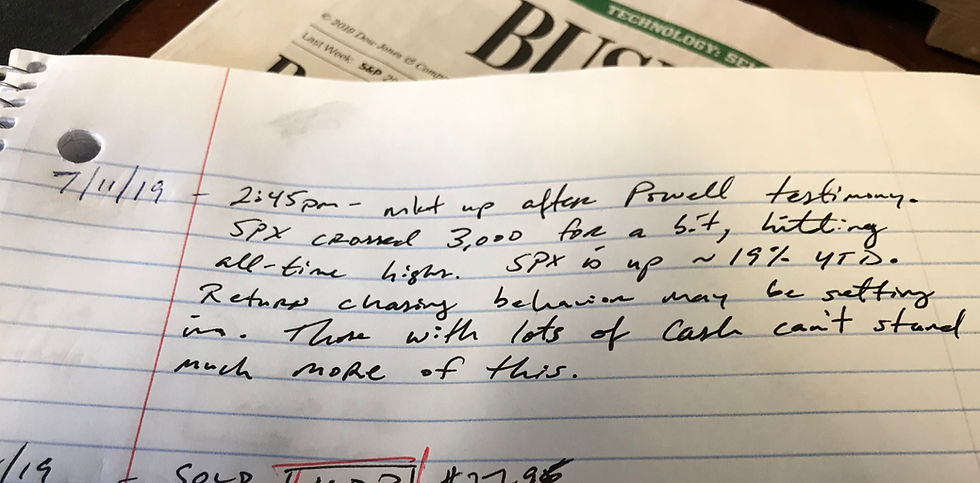 TECHNOLOGY: SE
© 2019 Dow Jones & Comp
Last Week: S&P
BUS
7/11/19 - 2:45pm - mkt up after Powell testimony.
SPX crossed 3,000 for a bit, hitting
all-time highs. SPX is up ~ 19% YTD.
Return chasing behavior may be setting
in. Those with lots of cash can't stand
much more of this.
/19 - SOLD